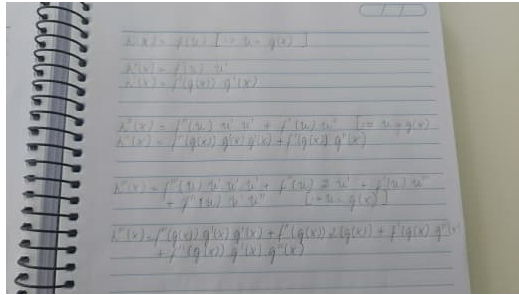 h(x) = f(u) [∴ u = g(x)]
h'(x) = f'(u) u'
h'(x) = f'(g(x)) g'(x)
h''(x) = f''(u) u' u' + f'(u) u'' [∴ u = g(x)
h''(x) = f''(g(x)) g'(x) g'(x) + f'(g(x)) g''(x)
h'''(x) = f'''(u) u' u' u' + f''(u) 2 u' + f'(u) u'''
+ f''(u) u' u'' [∴ u = g(x)]
h'''(x) = f'''(g(x)) g'(x) g'(x) + f''(g(x)) 2(g(x)) + f'(g(x) g'''(x)
+ f''(g(x)) g'(x) g''(x)